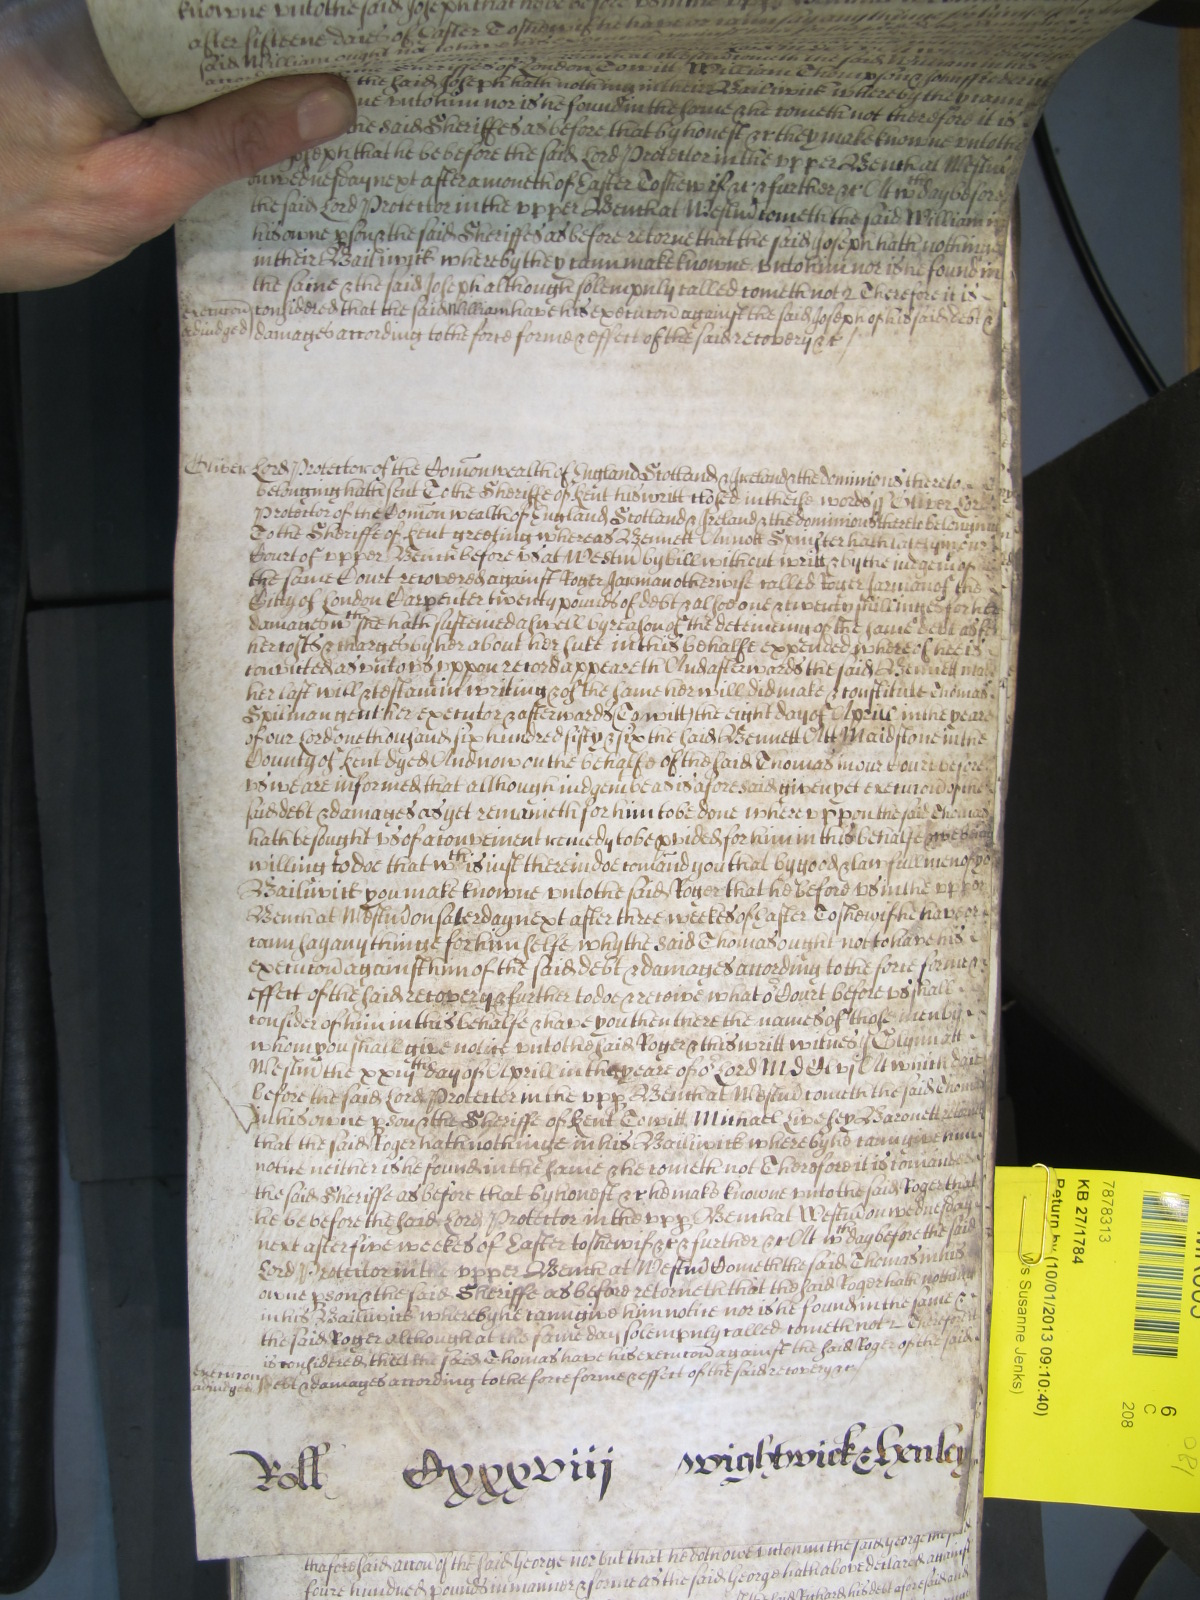 knowne unto the said Joseph that he be before us in the upper
after fifteene daies of Easter To shew if he have or cann say any thinge
said William ought not to have
Sheriffes of London To witt William Thompson & John
the said Joseph hath nothing in their Bailiwick whereby they cann
unto him nor is he found in the same & he cometh not therefore it is
the said Sheriffes as before that by honest &c they make knowne unto the
Joseph that he be before the said Lord Protector in the upper Bench at Westm
on wednesday next after a moneth of Easter To shew if &c & further &c At wch day before
the said Lord Protector in the upper Bench at Westm cometh the said William in
his owne pson & the said Sheriffes as before retorne that the said Joseph hath nothing
in their Bailiwick whereby they cann make knowne unto him nor is he found in
the same & the said Joseph although solempnly called cometh not &c Therefore it is
considered that the said William have his execucon against the said Joseph of his said debt &
damages according to the force forme & effect of the said recovery &c
execucon
adjudged
Oliver Lord Protector of the Comonwealth of England Scotland & Ireland & the dominions thereto
belonging hath sent To the Sheriffe of Kent his writt closed in these words ss Oliver Lord
Protector of the Comonwealth of England Scotland & Ireland & the dominions thereto belonging
To the Sheriffe of Kent greeting whereas Bennett Annott Spinster hath lately in our
Court of upper Bench before us at Westm by bill without writt & by the judgemt of
the same Court recovered against Roger Jarman otherwise called Roger Jarman of the
Citty of London Carpenter twenty pounds of debt & alsoe one & twenty shillinges for her
damages wch she hath susteined aswell by reason of the deteineing of the same debt as for
her costs & charges by her about her sute in this behalfe expended whereof hee is
convicted as unto us uppon record appeareth And afterwards the said Bennett made
her last will & testamt in writing & of the same her will did make & constitute Thomas
Spilman gent her executor & afterwards (To witt) the eight day of Aprill in the yeare
of our Lord one thousand six hundred fifty & six the said Bennett Att Maidstone in the
County of Kent dyed And now on the behalfe of the said Thomas in our Court before
us we are informed that although judgemt be as is aforesaid given yet execucon of the
said debt & damages as yet remayneth for him to be done where uppon the said Thomas
hath besought us of a convenient remedy to be pvided for him in this behalfe & we being
willing to doe that wch is just therein doe comand you that by good & lawfull men of yor
Bailiwick you make knowne unto the said Roger that he be before us in the upper
Bench at Westm on Saterday next after three weekes of Easter To shew if he have or
cann say any thinge for him selfe why the said Thomas ought not to have his
execucon against him of the said debt & damages according to the force forme &
effect of the said recovery & further to doe & receive what or Court before us shall
consider of him in this behalfe & have you then there the names of those men by
whom you shall give notice unto the said Roger & this writt witnes J Glynn att
Westm the xxiijth day of Aprill in the yeare of or Lord MDCLvj At which daie
before the said Lord Protector in the upp Bench at Westm cometh the said Thomas
in his owne pson & the Sheriffe of Kent To witt Michael Livesey Baronett retorneth
that the said Roger hath nothinge in his Bailiwick whereby he cann give him
notice neither is he found in the same & he cometh not Therefore it is comanded
the said Sheriffe as before that by honest &c he make knowne unto the said Roger that
he be before the said Lord Protector in the upp Bench at Westm on wednesday
next after five weekes of Easter to shew if &c & further &c At wch day before the said
Lord Protector in the upper Bench at Westm Cometh the said Thomas in his
owne pson & the said Sheriffe as before retorneth that the said Roger hath nothing
in his Bailiwick whereby he cann give him notice nor is he found in the same &
the said Roger although at the same day solempnly called cometh not &c Therefore it
is considered that the said Thomas have his execucon against the said Roger of the said
debt & damages according to the force forme & effect of the said recovery &c
execucon
adjudged
Roll Cxxxviij Wightwick & Henley
thaforesaid accon of the said George nor but that he doth owe unto him the said George the said
foure hundred pounds in manner & forme as the said George hath above declared against
the said Richard his debt aforesaid and
7878313
KB 27/1784
Return by (10/01/2013 09:10:40)
Susanne Jenks)
6
C
208